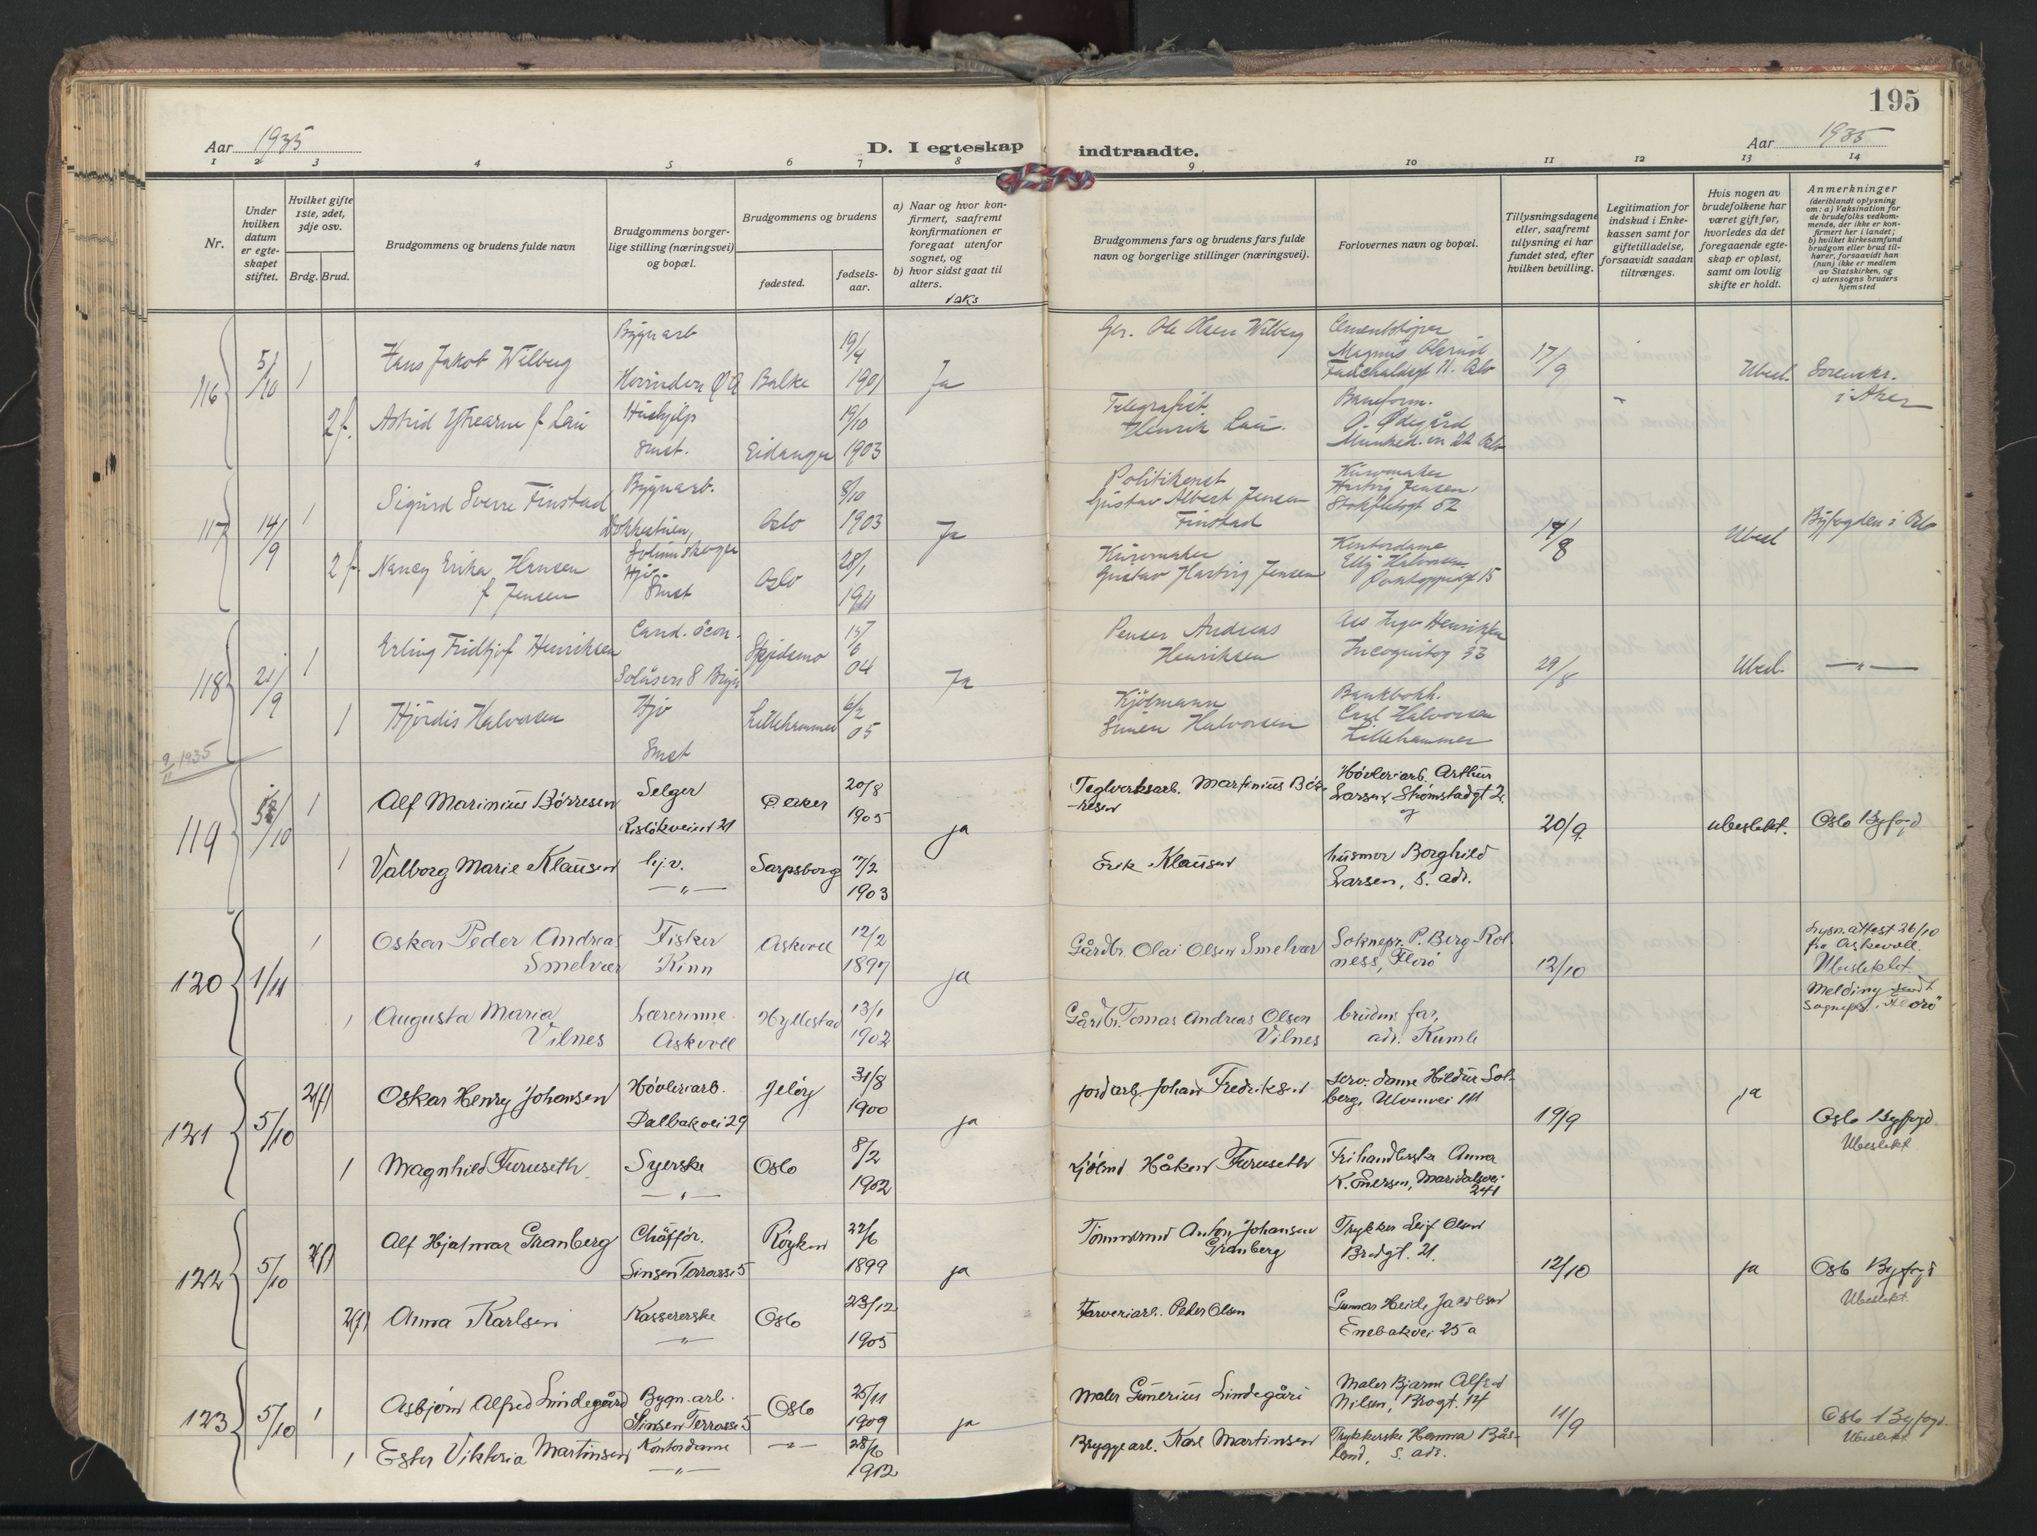 195
Aar 1935
D. I egteskap indtraadte.
Aar 1935
1 2 3 4 5 6 7 8 9 10 11 12 13 14
Nr.
Under hvilken datum er egteskapet stiftet.
Hvilket gifte 1ste, 2det, 3dje osv.
Brdg. Brud.
Brudgommens og brudens fulde navn
Brudgommens borgerlige stilling (næringsvei) og bopæl.
Brudgommens og brudens
fødested.
fødselsaar.
a) Naar og hvor konfirmert, saafremt konfirmationen er foregaat utenfor sognet, og
b) hvor sidst gaat til alters.
vaks
Brudgommens fars og brudens fars fulde navn og borgerlige stillinger (næringsvei).
Forlovernes navn og bopæl.
Tillysningsdagene eller, saafremt tillysning ei har fundet sted, efter hvilken bevilling.
Legitimation for indskud i Enkekassen samt for giftetilladelse, forsaavidt saadan tiltrænges.
Hvis nogen av brudefolkene har været gift før, hvorledes da det foregaaende egteskap er opløst, samt om lovlig skifte er holdt.
Anmerkninger (deriblandt oplysning om: a) Vaksination for de brudefolks vedkommende, der ikke er konfirmert her i landet; b) hvilket kirkesamfund brudgom eller brud tilhører, forsaavidt han (hun) ikke er medlem av Statskirken, og c) utensogns bruders hjemsted
116 5/10 1 Hans Jakob Wilberg Bygnarb Balke 19/4 1901 Ja Ole Olsen Wilberg Magnus 17/9 Ubesl. Sorenskr. i Aker
2 f. Astrid f. Lau Hushjelp Smst. Eidanger 19/10 1903 Telegrafist Henrik Lau. Baneform. O. Ødegård
117 14/9 1 Sigurd Sverre Finstad Bygnarb. Oslo 8/10 1903 Ja Politikonst Gustav Albert Jensen Finstad Kurvmaker Hartvig Jensen, 52 Ubesl Byfogden i Oslo
2 f. Nancy Erika Hansen f. Jensen Hjv. Smst Oslo 28/1 1911 Kurvmaker Gustav Hartvig Jensen Kontordame Elly Halvorsen. 15
118 21/9 1 Erling Fridtjof Henriksen Cand. öcon. Ja Andreas Henriksen Henriksen 33 29/8 Ubesl. —"—
1 Hjördis Halvorsen Hjv Smst Lillehammer 6/2 05 Kjöbmann Simen Halvorsen Bankbokh. Halvorsen Lillehammer
9/11 1935
119 1 Alf Marinius Börresen Selger Risløkveien 21 Ø. Aker 20/8 1905 ja Teglverksarb. Martinius Börresen Høvleriarb. Arthur Larsen, Strømstadgt 2. og 20/9. ubeslekt. Oslo Byfogd
1 Valborg Marie Klausen hjv. —"— Sarpsborg 7/2 1903 Erik Klausen husmor Borghild Larsen, s. adr.
120 1/11 1 Oskar Peder Andreas Smelvær Fisker Kinn Askvoll 12/2 1897 ja Gårdbr. Olai Olsen Smelvær Soknepr. P. Berg Rolness, Florö 12/10 Lysn.attest 26/10 fra Askevoll. Ubeslektet Melding sendt Sognepr. i Florö
1 Augusta Maria Vilnes Lærerinne Askvoll Hyllestad 13/1 1902 Gårdbr. Tomas Andreas Olsen Vilnes brudens far, adr. Kumle
121 5/10 2(f) Oskar Henry Johansen Høvleriarb. Dalbakvei 29 Jeløy 31/8 1900 ja Jordarb. Johan Fredriksen Serv. dame Hildur Solberg, Ulvenvei 111 19/9 ja Oslo Byfogd. Ubeslekt
1 Magnhild Furuseth. Syerske —"— Oslo 8/2 1902 Håken Furuseth Frihandlerske Anna K. Enersen, Maridalsvei 241
122 5/10 2(f) Alf Hjalmar Granberg Chaffør. Sinsen Terrasse 5 Röyken 22/6 1899 ja Tømmermd Anton Johansen Granberg Trykker Leif Olsen Bredgt. 21. 12/10 ja Oslo Byfogd Ubeslekt.
2(f) Anna Karlsen Kassererske —"— Oslo 23/12 1905 Farveriarb. Peder Olsen Gunnar Heide Jacobsen Enebakvei 25 a
123 5/10 1 Asbjørn Alfred Lindegård Bygn. arb. Sinsen Terrasse 5 Oslo 25/11 1909 ja Maler Gunerius Lindegård Maler Bjarne Alfred Nilsen, Brogt. 14 11/9 Oslo Byfogd. Ubeslekt
1 Ester Viktoria Martinsen Kontordame —"— —"— 28/6 1912 Bryggearb. Karl Martinsen Trykkerske Hanna s. adr.